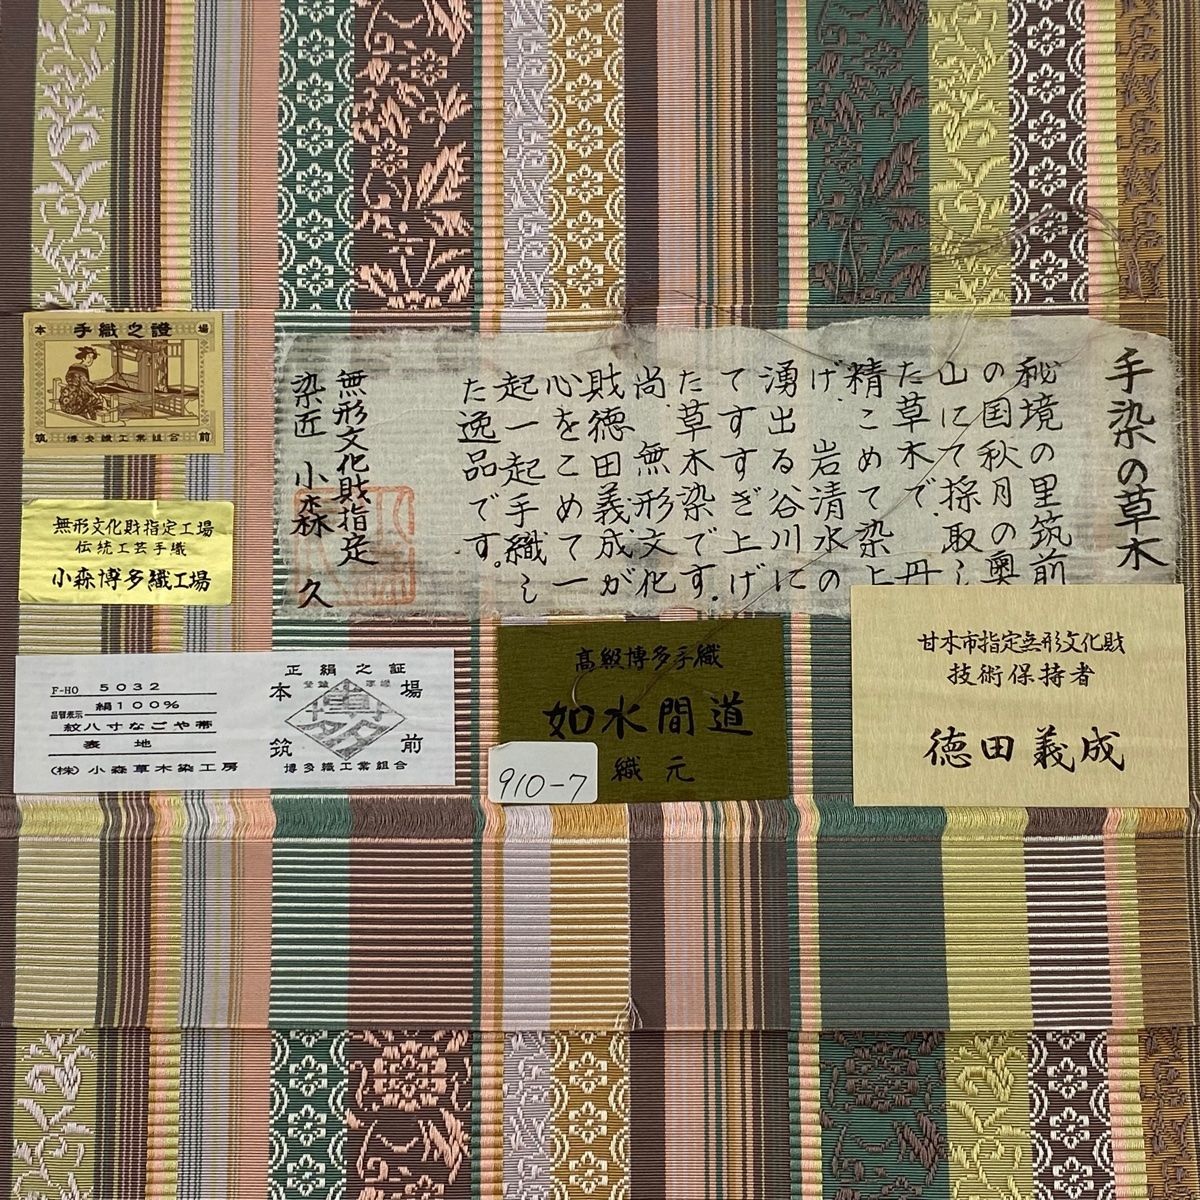 本 手織之證 場
筑 博多織工業組合 前
手染の草木
秘境の里筑前
の国秋月の奥
山にて採取し
た草木で、丹
精こめて染上
げ、岩清水の
湧出る谷川に
てすすぎ上げ
た草木染です。
尚、無形文化
財徳田義成が
心をこめて一
起一起手織し
た逸品です。
無形文化財指定
染匠 小森 久
無形文化財指定工場
伝統工芸手織
小森博多織工場
F-HO 5032
絹100%
品質表示
紋八寸なごや帯
表地
(株)小森草木染工房
正絹之証
本 登録 博多 場
筑 前
博多織工業組合
高級博多手織
如水間道
織元
910-7
甘木市指定無形文化財
技術保持者
徳田義成